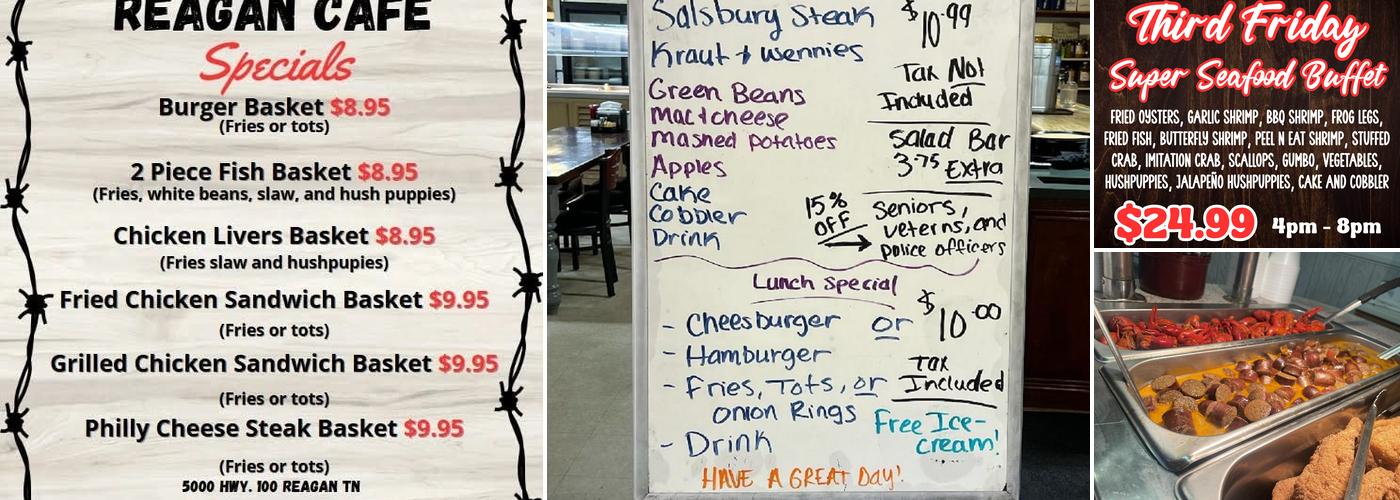 REAGAN CAFE
Specials
Burger Basket $8.95
(Fries or tots)
2 Piece Fish Basket $8.95
(Fries, white beans, slaw, and hush puppies)
Chicken Livers Basket $8.95
(Fries slaw and hushpupies)
Fried Chicken Sandwich Basket $9.95
(Fries or tots)
Grilled Chicken Sandwich Basket $9.95
(Fries or tots)
Philly Cheese Steak Basket $9.95
(Fries or tots)
5000 HWY. 100 REAGAN TN
Salsbury Steak $10.99
Kraut + Wennies
Tax Not
Included
Green Beans
Mac + cheese
Mashed Potatoes
Apples
Cake
Cobbler
Drink
Salad Bar
3.75 Extra
15%
OFF
Seniors,
veterns, and
police officers
Lunch Special
- Cheesburger or $10.00
- Hamburger
Tax
Included
- Fries, Tots, or
Onion Rings
- Drink
Free Ice-
cream!
HAVE A GREAT DAY!
Third Friday
Super Seafood Buffet
FRIED OYSTERS, GARLIC SHRIMP, BBQ SHRIMP, FROG LEGS,
FRIED FISH, BUTTERFLY SHRIMP, PEEL N EAT SHRIMP, STUFFED
CRAB, IMITATION CRAB, SCALLOPS, GUMBO, VEGETABLES,
HUSHPUPPIES, JALAPEÑO HUSHPUPPIES, CAKE AND COBBLER
$24.99 4pm - 8pm